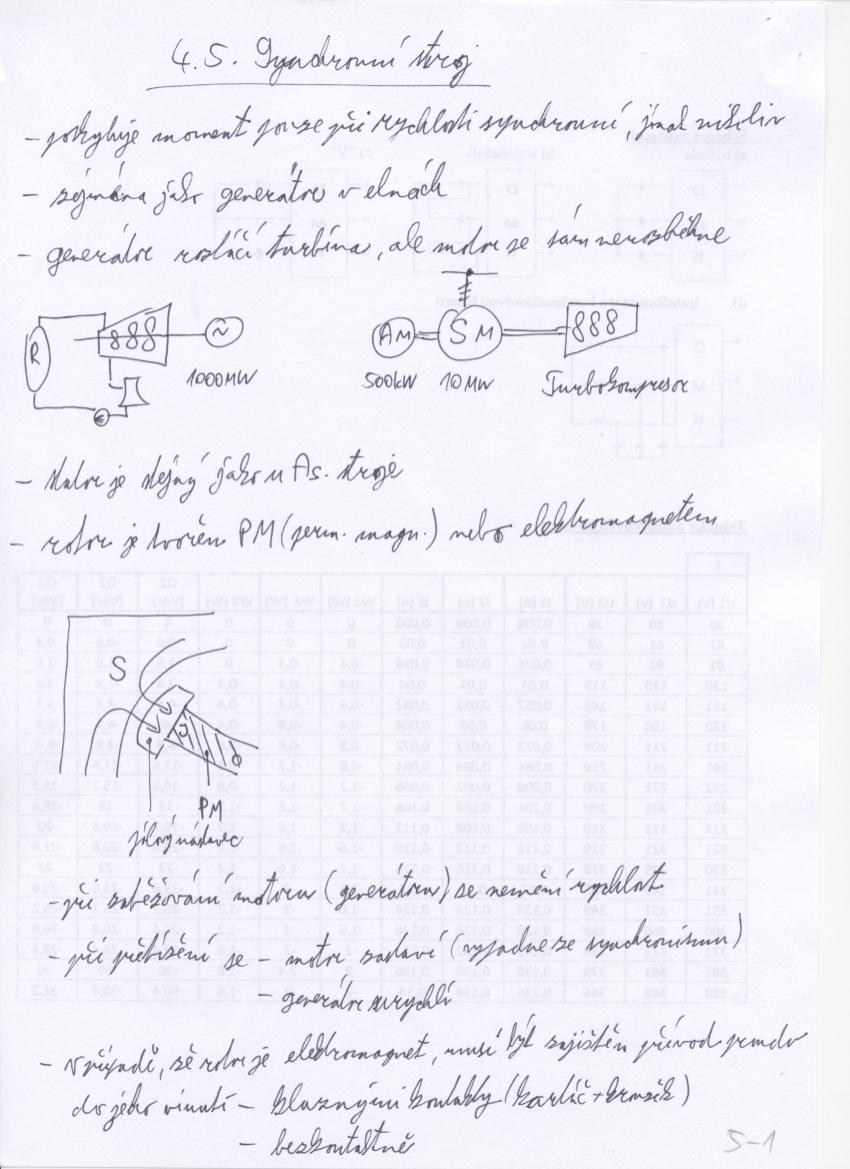 4.5. Synchronní stroj
- poskytuje moment pouze při rychlosti synchronní, jinak nikoliv
- zejména jako generátor v elnách
- generátor roztáčí turbína, ale motor se sám nerozběhne
R
~
AM
SM
1000MW
500kW
10MW
Turbokompresor
- stator je stejný jako u As. stroje
- rotor je tvořen PM (perm. magn.) nebo elektromagnetem
S
J
PM
pólový nádavec
- při zatěžování motoru (generátoru) se nemění rychlost
- při přetížení se - motor zastaví (vypadne ze synchronismu)
- generátor zrychlí
- v případě, že rotor je elektromagnet, musí být zajištěn přívod proudu
do jeho vinutí - kluznými kontakty (kartáč + kroužek)
- bezkontaktně
5-1